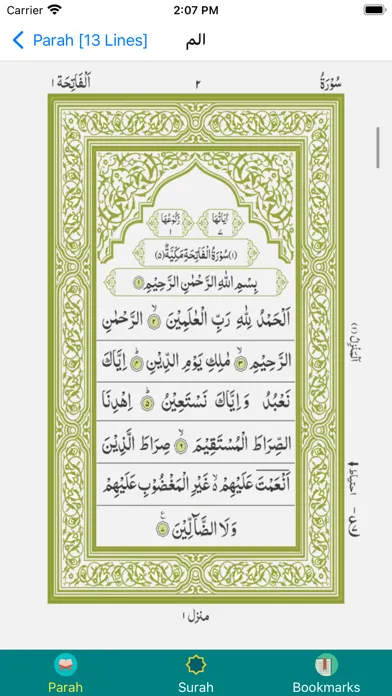 Carrier 2:07 PM
Parah [13 Lines] الم
سُوْرَةُ ٢ اَلْفَاتِحَة ١
اٰيَاتُهَا ٧ رُكُوْعُهَا ١
(١) سُوْرَةُ الْفَاتِحَةِ مَكِّيَّةٌ (٥)
بِسْمِ اللّٰهِ الرَّحْمٰنِ الرَّحِيْمِ ١
اَلْحَمْدُ لِلّٰهِ رَبِّ الْعٰلَمِيْنَ ۙ ٢ الرَّحْمٰنِ
الرَّحِيْمِ ۙ ٣ مٰلِكِ يَوْمِ الدِّيْنِ ؕ ٤ اِيَّاكَ
نَعْبُدُ وَاِيَّاكَ نَسْتَعِيْنُ ؕ ٥ اِهْدِنَا
الصِّرَاطَ الْمُسْتَقِيْمَ ۙ ٦ صِرَاطَ الَّذِيْنَ
اَنْعَمْتَ عَلَيْهِمْ ۙ۬ غَيْرِ الْمَغْضُوْبِ عَلَيْهِمْ
وَلَا الضَّآلِّيْنَ ٧
اَلْمَنْزِلُ (١)
احتیاط
منزل ١
Parah Surah Bookmarks